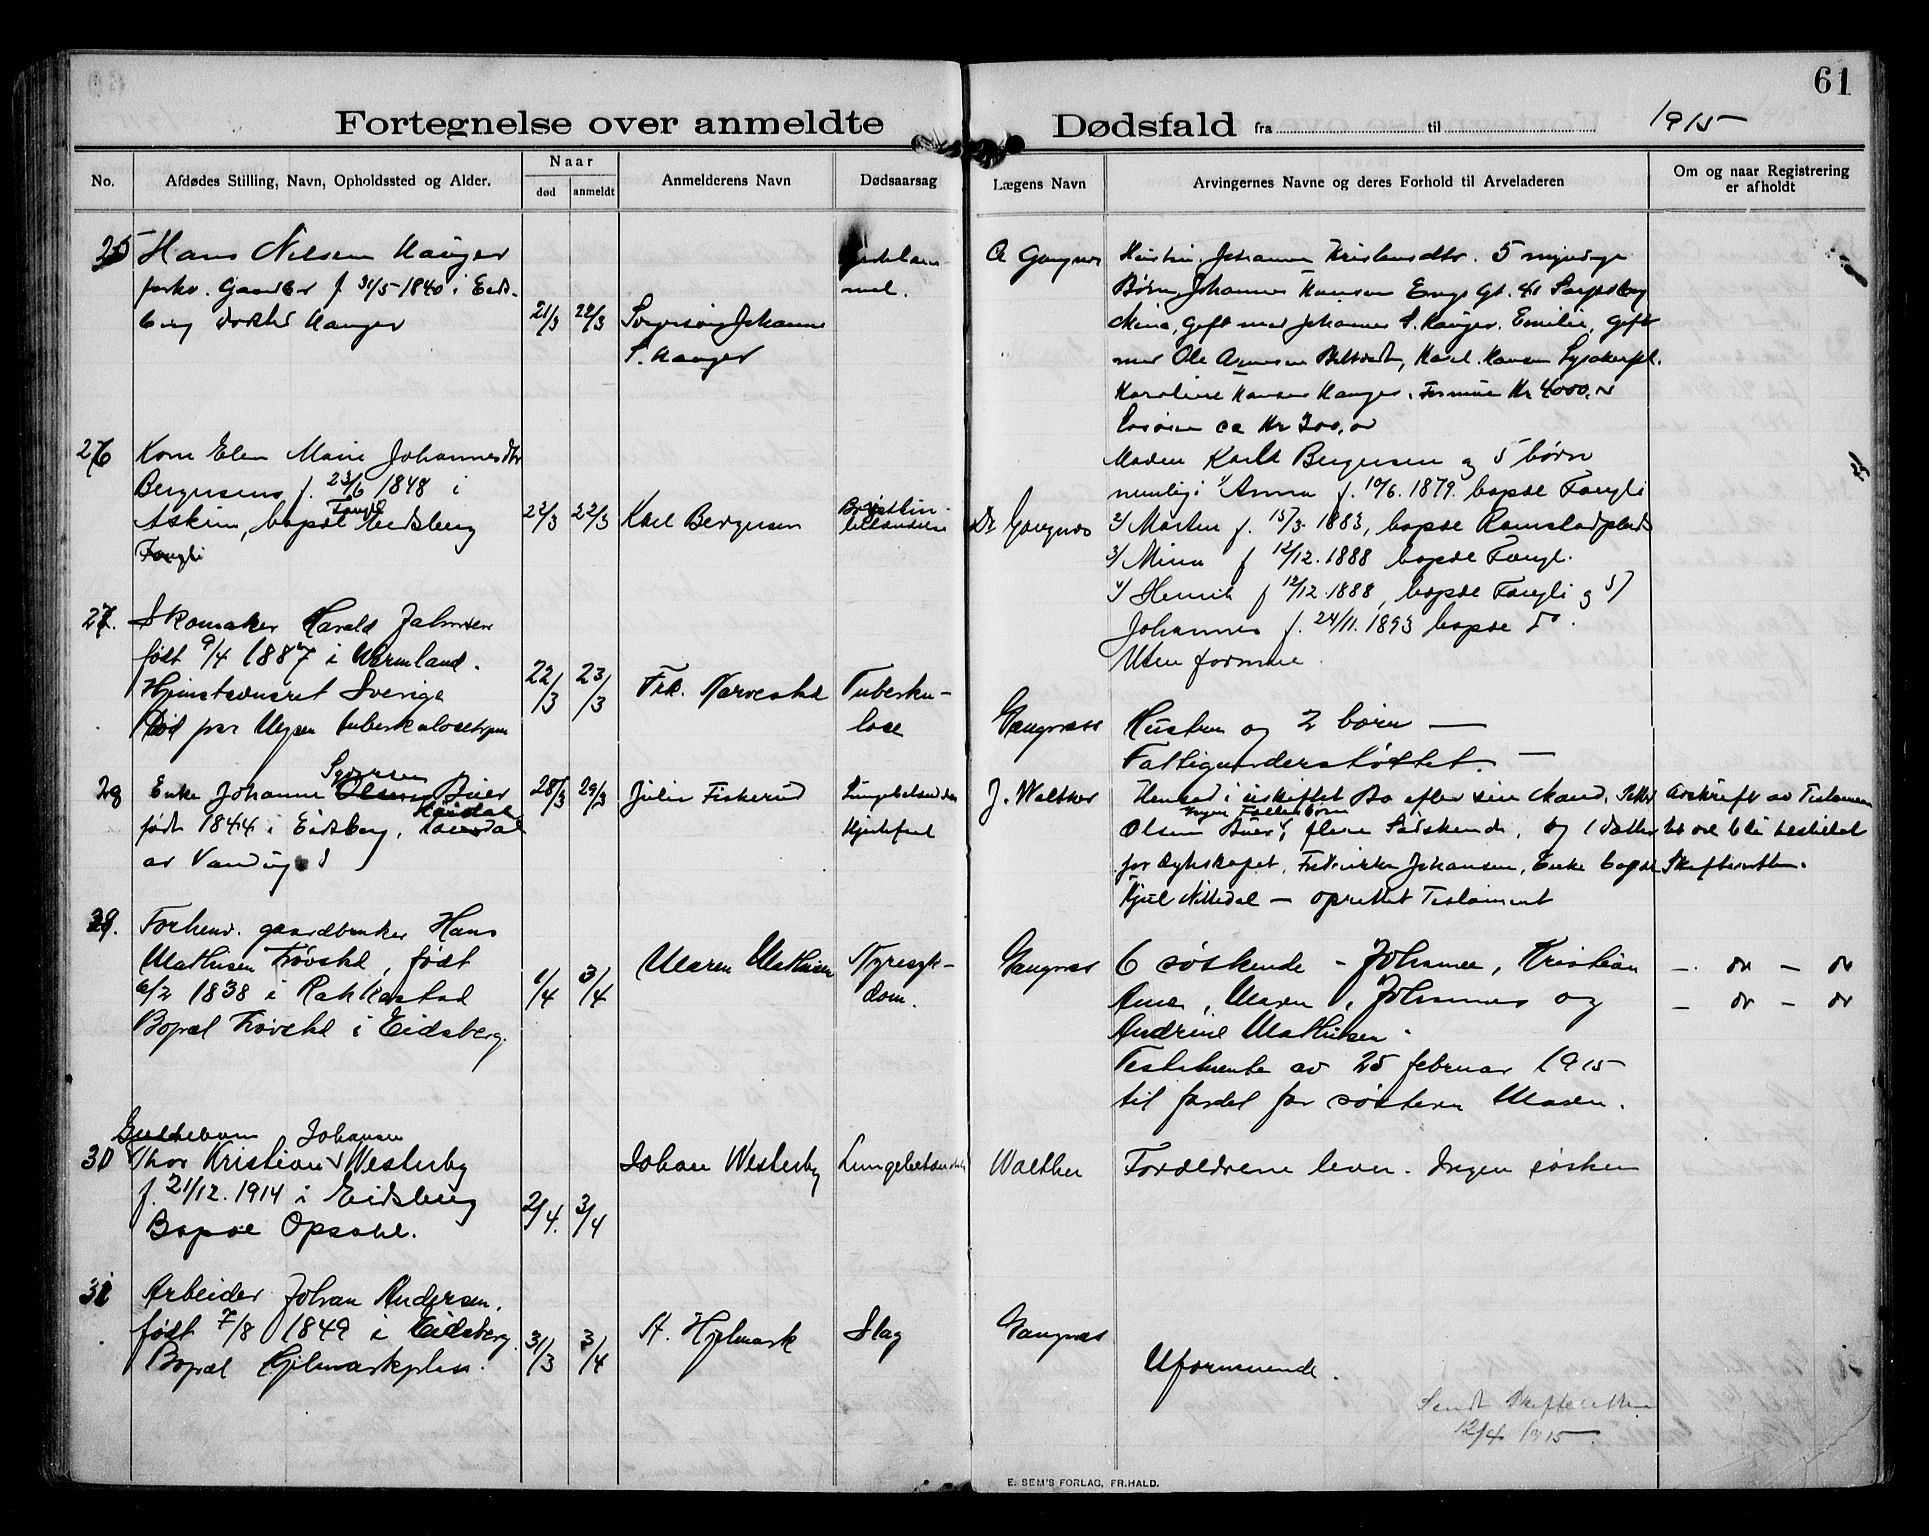 61
Fortegnelse over anmeldte Dødsfald fra til 1915
No.
Afdødes Stilling, Navn, Opholdssted og Alder.
Naar
død
anmeldt
Anmelderens Navn
Dødsaarsag
Lægens Navn
Arvingernes Navne og deres Forhold til Arveladeren
Om og naar Registrering
er afholdt
25 Hans Nilsen Hauger
forhv. Gaardbr f 31/5 1840 i Eids-
berg Hauger
21/3 22/3
Johanne
S. Hauger
Hustru, Johanne 5 myndige
Børn, Johannes Hansen Enge Gt. 41 Sarpsborg
Mina, Gift med Johannes S. Hauger. Emilie, Gift
med Ole Hansen
Karoline Hansen Hauger. Formue Kr 4000,
Løsøre ca Kr 300,
26 Kone Elen Marie Johannesdtr
Bergersens f. 23/6 1848 i
Askim, bopæl Fangli Eidsberg
Fangli
22/3 22/3
Karl Bergersen
Dr Gangnæs
Manden Karl Bergersen og 5 børn
nemlig: 1/ Anna f. 10/6. 1879. bopæl Fangli
2/ Morten f. 15/3 1883, bopæl Ramstadplads
3/ Mina f 12/12. 1888 bopæl Fangli
4/ Henrik f 12/12 1888, bopæl Fangli og 5/
Johannes f. 24/11. 1893 bopæl do.
Uten formue.
27. Skomaker Harald
født 9/4 1887 i Wermland.
Hjemstavnsret Sverige
Død paa tuberkulosehjem
22/3 23/3
Tuberku-
lose
Gangnæs
Hustru og 2 børn —
Fattigunderstøttet. —
28 Enke Johanne Syversen Olsen Buer
født 1844 i Eidsberg,
28/3 29/3
Julie Fiskerud
Lungebetændelse
Hjertefeil
J. Walther
Hensad i uskiftet Bo efter sin Mand, Petter
Olsen Buer, Ingen Fællesbørn flere Sødskende, og 1 datter
for Ægteskapet, Fredrikke Johansen, Enke bopæl
Nittedal — oprettet Testament
Avskrift av Testamen
tet vil bli tilstillet
Skifteretten.
29. Forhenv. gaardbruker Hans
Mathisen Trøvstad, født
6/2 1838 i Rakkestad
Bopæl Trøvstad i Eidsberg.
1/4 3/4
Maren Mathisen
Nyresyk-
dom.
Gangnæs
6 søskende - Johanne, Kristian
Anne, Maren, Johannes og
Andrine Mathisen.
Testamente av 25 februar 1915
til fordel for søsteren Maren.
30 Guttebarn
Thor Kristian Johansen Westerby
f. 21/12. 1914 i Eidsberg
Bopæl Opsahl.
2/4. 3/4
Johan Westerby
Lungebetændelse
Walther
Forældrene lever. Ingen søsken
31 Arbeider Johan Andersen.
født 7/8 1849 i Eidsberg.
Bopæl Hjelmarkplsn.
31/3 3/4
A. Hjelmark
Slag
Gangnæs
Uformuende.
Sendt Skifteretten
12/4 1915.
E. SEM'S FORLAG, FR.HALD.